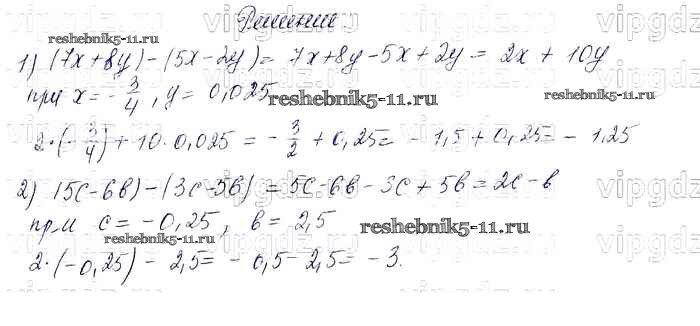 Решение
1) (7x+8y)-(5x-2y)= 7x+8y-5x+2y= 2x+10y
при x=-3/4, y= 0,025
2·(-3/4)+10·0,025=-3/2+0,25=-1,5+0,25=-1,25
2) (5c-6b)-(3c-5b)=5c-6b-3c+5b=2c-b
при c=-0,25, b=2,5
2·(-0,25)-2,5=-0,5-2,5=-3.
reshebnik5-11.ru
reshebnik5-11.ru
reshebnik5-11.ru
reshebnik5-11.ru
reshebnik5-11.ru
vipgdz
vipgdz
vipgdz
vipgdz
vipgdz